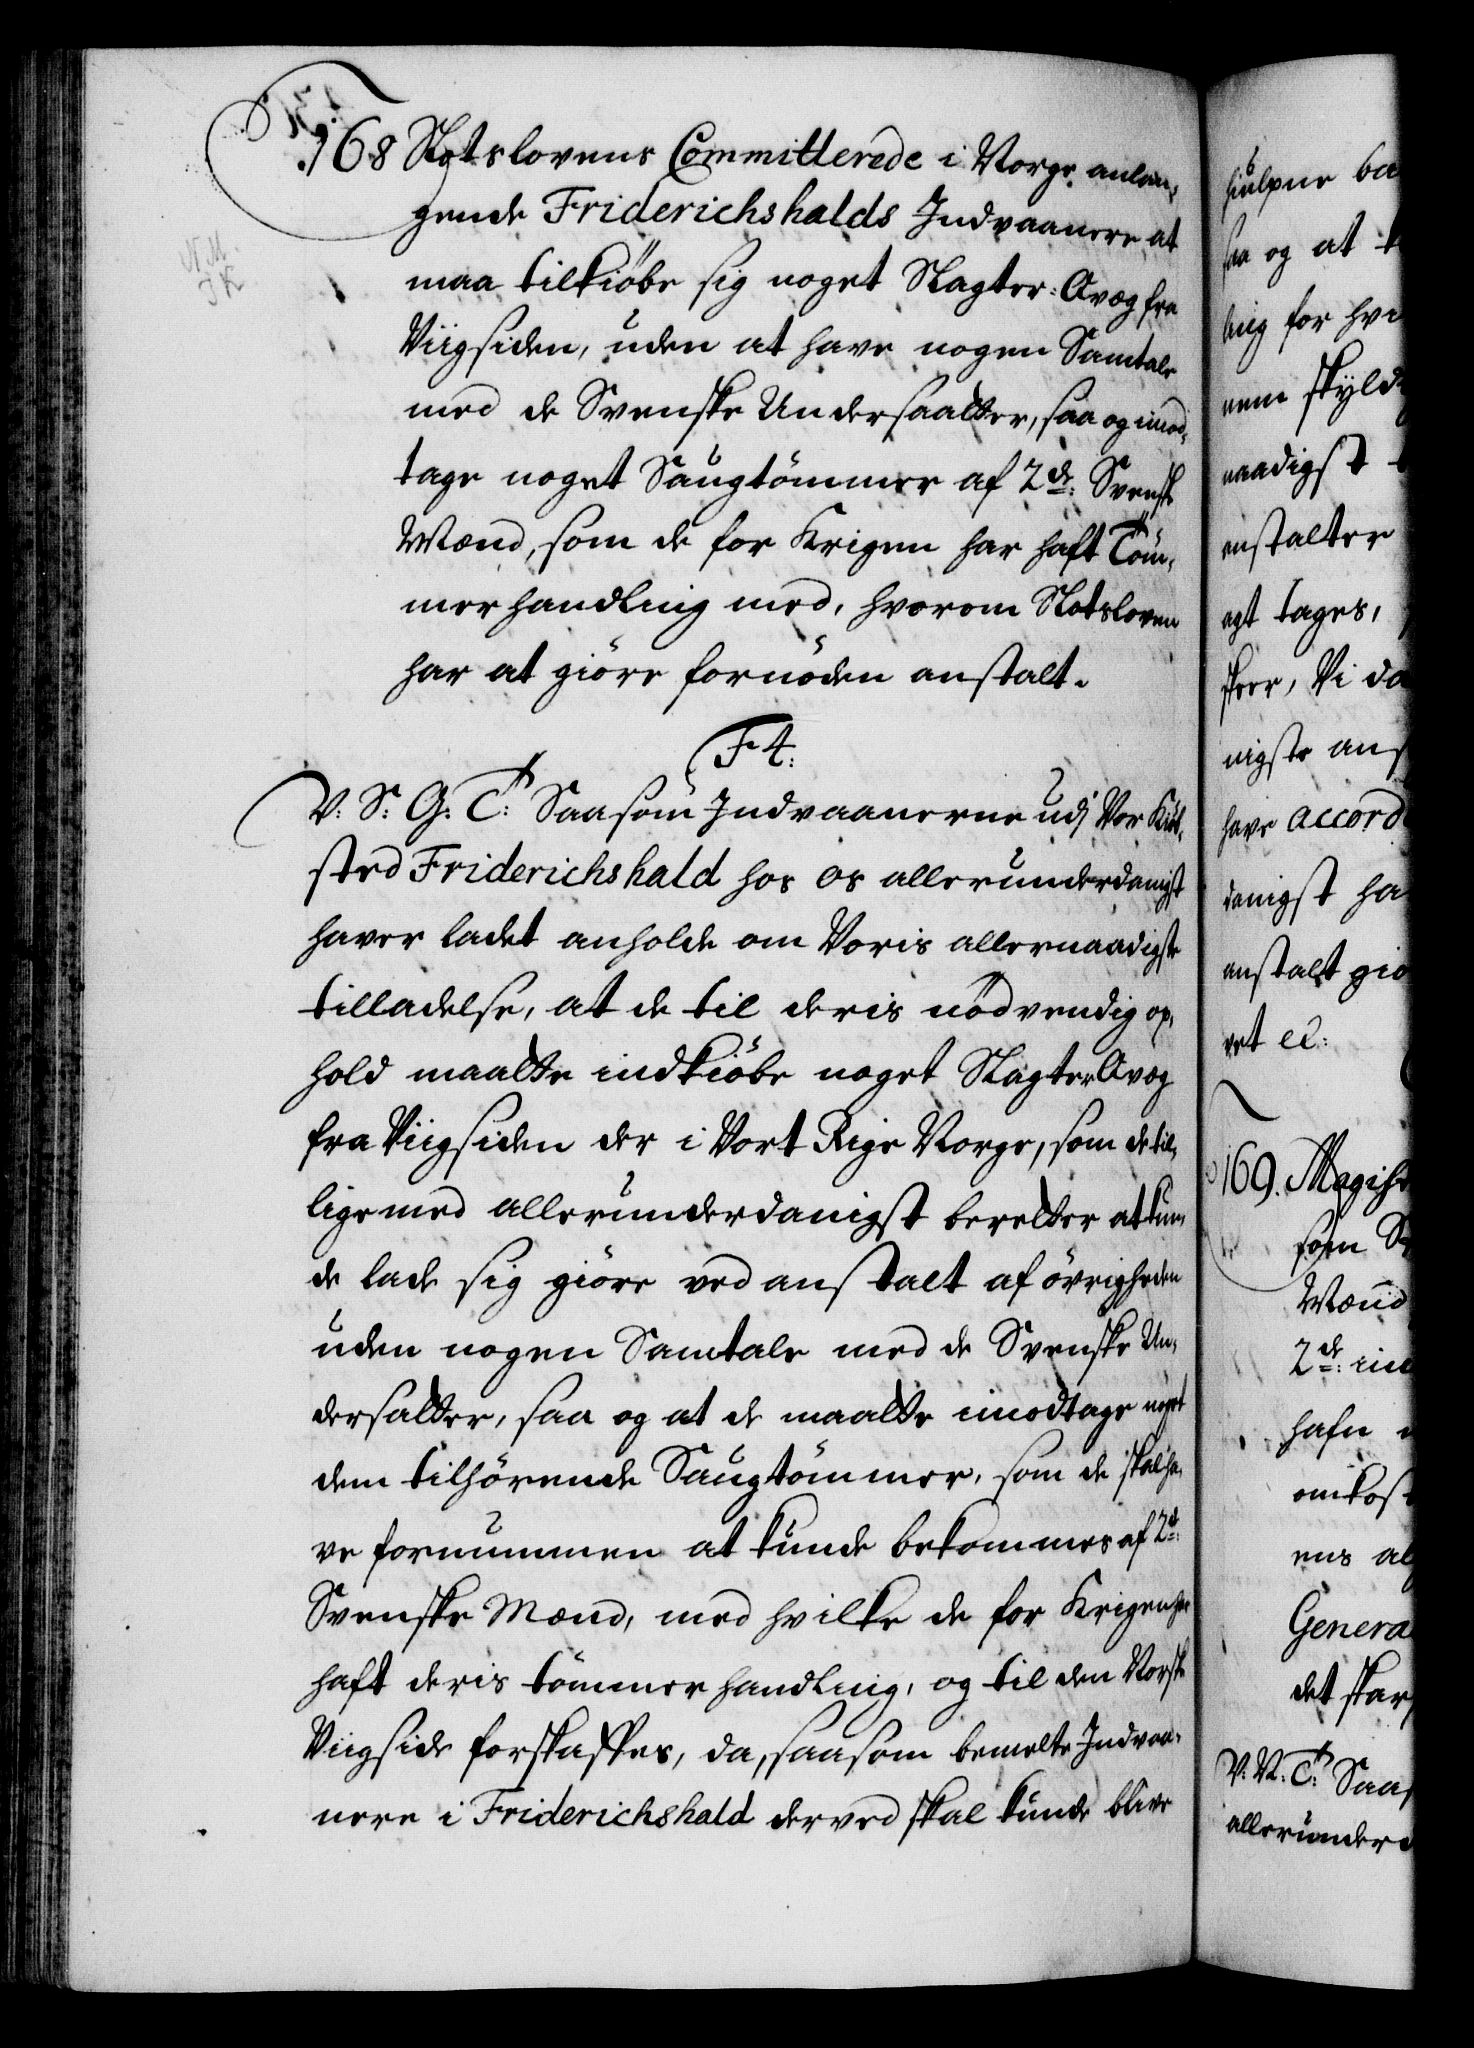 168 Slotslovens Committerede i Norge anlan-
gende Friderichshalds Indvaanere at
maa tilkiöbe sig noget Slagter-Qvæg fra
Viigsiden, uden at have nogen Samtale
med de Svenske Undersaatter, saa og imod-
tage noget Saugtömmer af 2de: Svenske
Mænd, som de for Krigen har haft Töm-
merhandling med, hvorom Slotsloven
har at giöre fornöden anstalt.
F4:
V: S: G: T: Saasom Indvaanerne udj Vor Kiöb-
sted Friderichshald hos os allerunderdanigst
haver ladet anholde om Voris allernaadigste
tilladelse, at de til deris nödvendig op-
hold maatte indkiöbe noget Slagter Qvæg
fra Viigsiden der i Vort Rige Norge, som de til-
lige med allerunderdanigst beretter at kun-
de lade sig giöre ved anstalt af övrigheden
uden nogen Samtale med de Svenske Un-
dersatter, saa og at de maatte imodtage noget
dem tilhörende Saugtömmer, som de skal ha-
ve fornummen at kunde bekommes af 2de:
Svenske Mænd, med hvilke de for Krigen har
haft deris tömmerhandling, og til den Norske
Viigside forskaffes, da, saasom bemelte Indvaa-
nere i Friderichshald derved skal kunde blive
NM
JK
hiulpne
saa og at
ling for
nem
naadigst
anstalter
agt tages,
skeer, Vi
nigste
have accord
danigst
anstalt
vet etc:
169. Magistr
som
Mænd
2de:
hafn
omkost
ens
General
det
V: N: T: Saas
allerunder